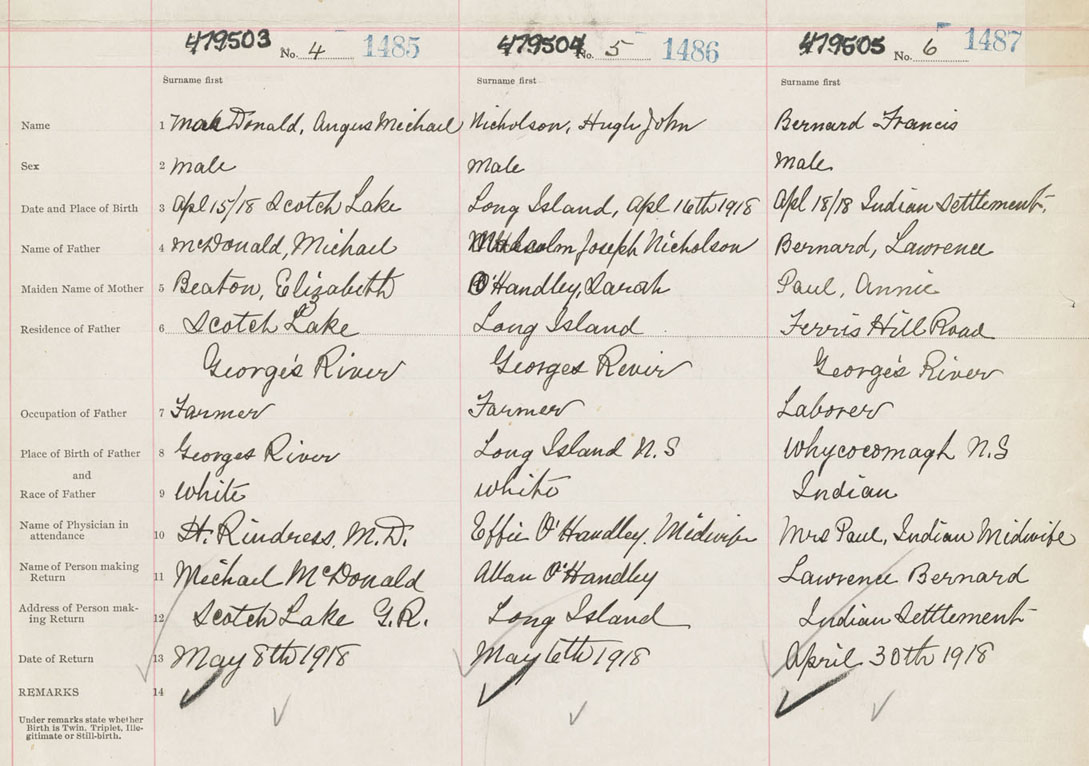 479503 No. 4 1485 479504 No. 5 1486 479505 No. 6 1487
Surname first Surname first Surname first
Name 1 MacDonald, Angus Michael Nicholson, Hugh John Bernard Francis
Sex 2 male Male Male
Date and Place of Birth 3 Apl 15/18 Scotch Lake Long Island, Apl 16th 1918 Apl 18/18 Indian Settlement.
Name of Father 4 McDonald, Michael Malcolm Joseph Nicholson Bernard, Lawrence
Maiden Name of Mother 5 Beaton, Elizabeth O'Handley, Sarah Paul, Annie
Residence of Father 6 Scotch Lake Long Island Ferris Hill Road
George's River Georges Revir George's River
Occupation of Father 7 Farmer Farmer Laborer
Place of Birth of Father 8 Georges River Long Island N.S Whycocomagh N.S
and
Race of Father 9 White White Indian
Name of Physician in
attendance 10 H. Rindress. M.D. Effie O'Handley. Midwife Mrs Paul, Indian Midwife
Name of Person making
Return 11 Michael McDonald Allan O'Handley Lawrence Bernard
Address of Person mak-
ing Return 12 Scotch Lake G.R. Long Island Indian Settlement
Date of Return 13 May 8th 1918 May 6th 1918 April 30th 1918
REMARKS 14
Under remarks state whether
Birth is Twin, Triplet, Ille-
gitimate or Still-birth.